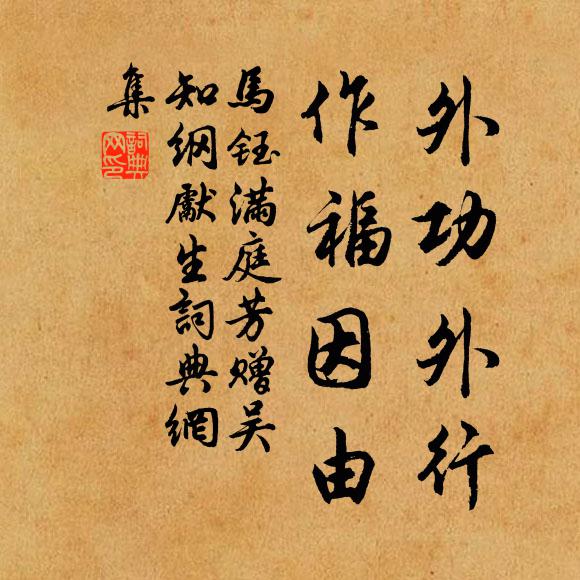 外功外行
作福因由
馬鈺滿庭芳贈吴
知綱獻生詞典網
集
詞典網印